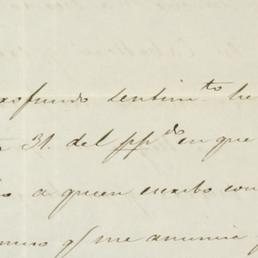 ofundo sentim.to he
31. del pp.do en que
a quien escribo con
q/ me anuncia